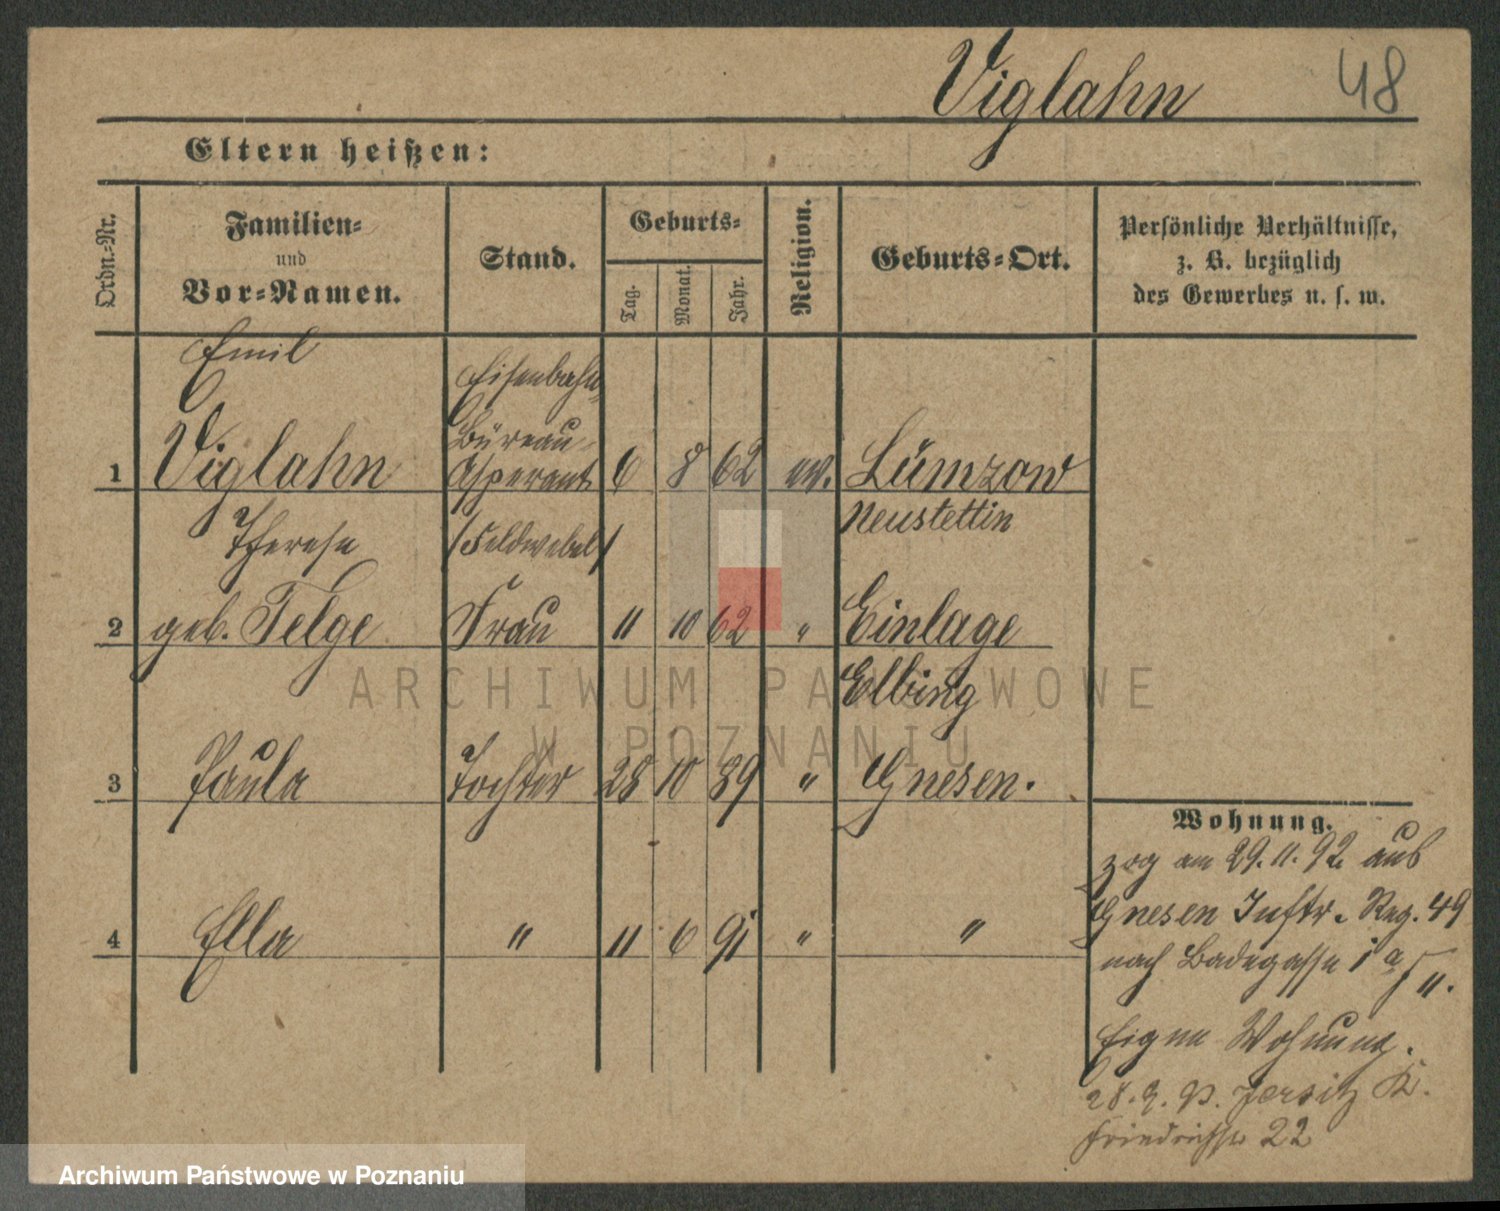 Viglahn 48
Eltern heißen:
Ordn.-Nr.
Familien-
und
Vor-Namen.
Stand.
Geburts-
Tag.
Monat.
Jahr.
Religion.
Geburts-Ort.
Persönliche Verhältnisse,
z. B. bezüglich
des Gewerbes u. s. w.
Emil
Eisenbahn-
Büreau-
1 Viglahn Asperant 6 8 62 ev. Lümzow
(Feldwebel) Neustettin
Therese
2 geb. Telge Frau 11 10 62 " Einlage
Elbing
3 Paula Tochter 28 10 89 " Gnesen.
4 Ella " 11 6 91 " "
Wohnung.
zog am 29.11.92 aus
Gnesen Inftr. Reg. 49
nach Badegasse 1a
II.
Eigne Wohnung.
Jersitz K.
Friedrichstr 22
ARCHIWUM PAŃSTWOWE
W POZNANIU
Archiwum Państwowe w Poznaniu